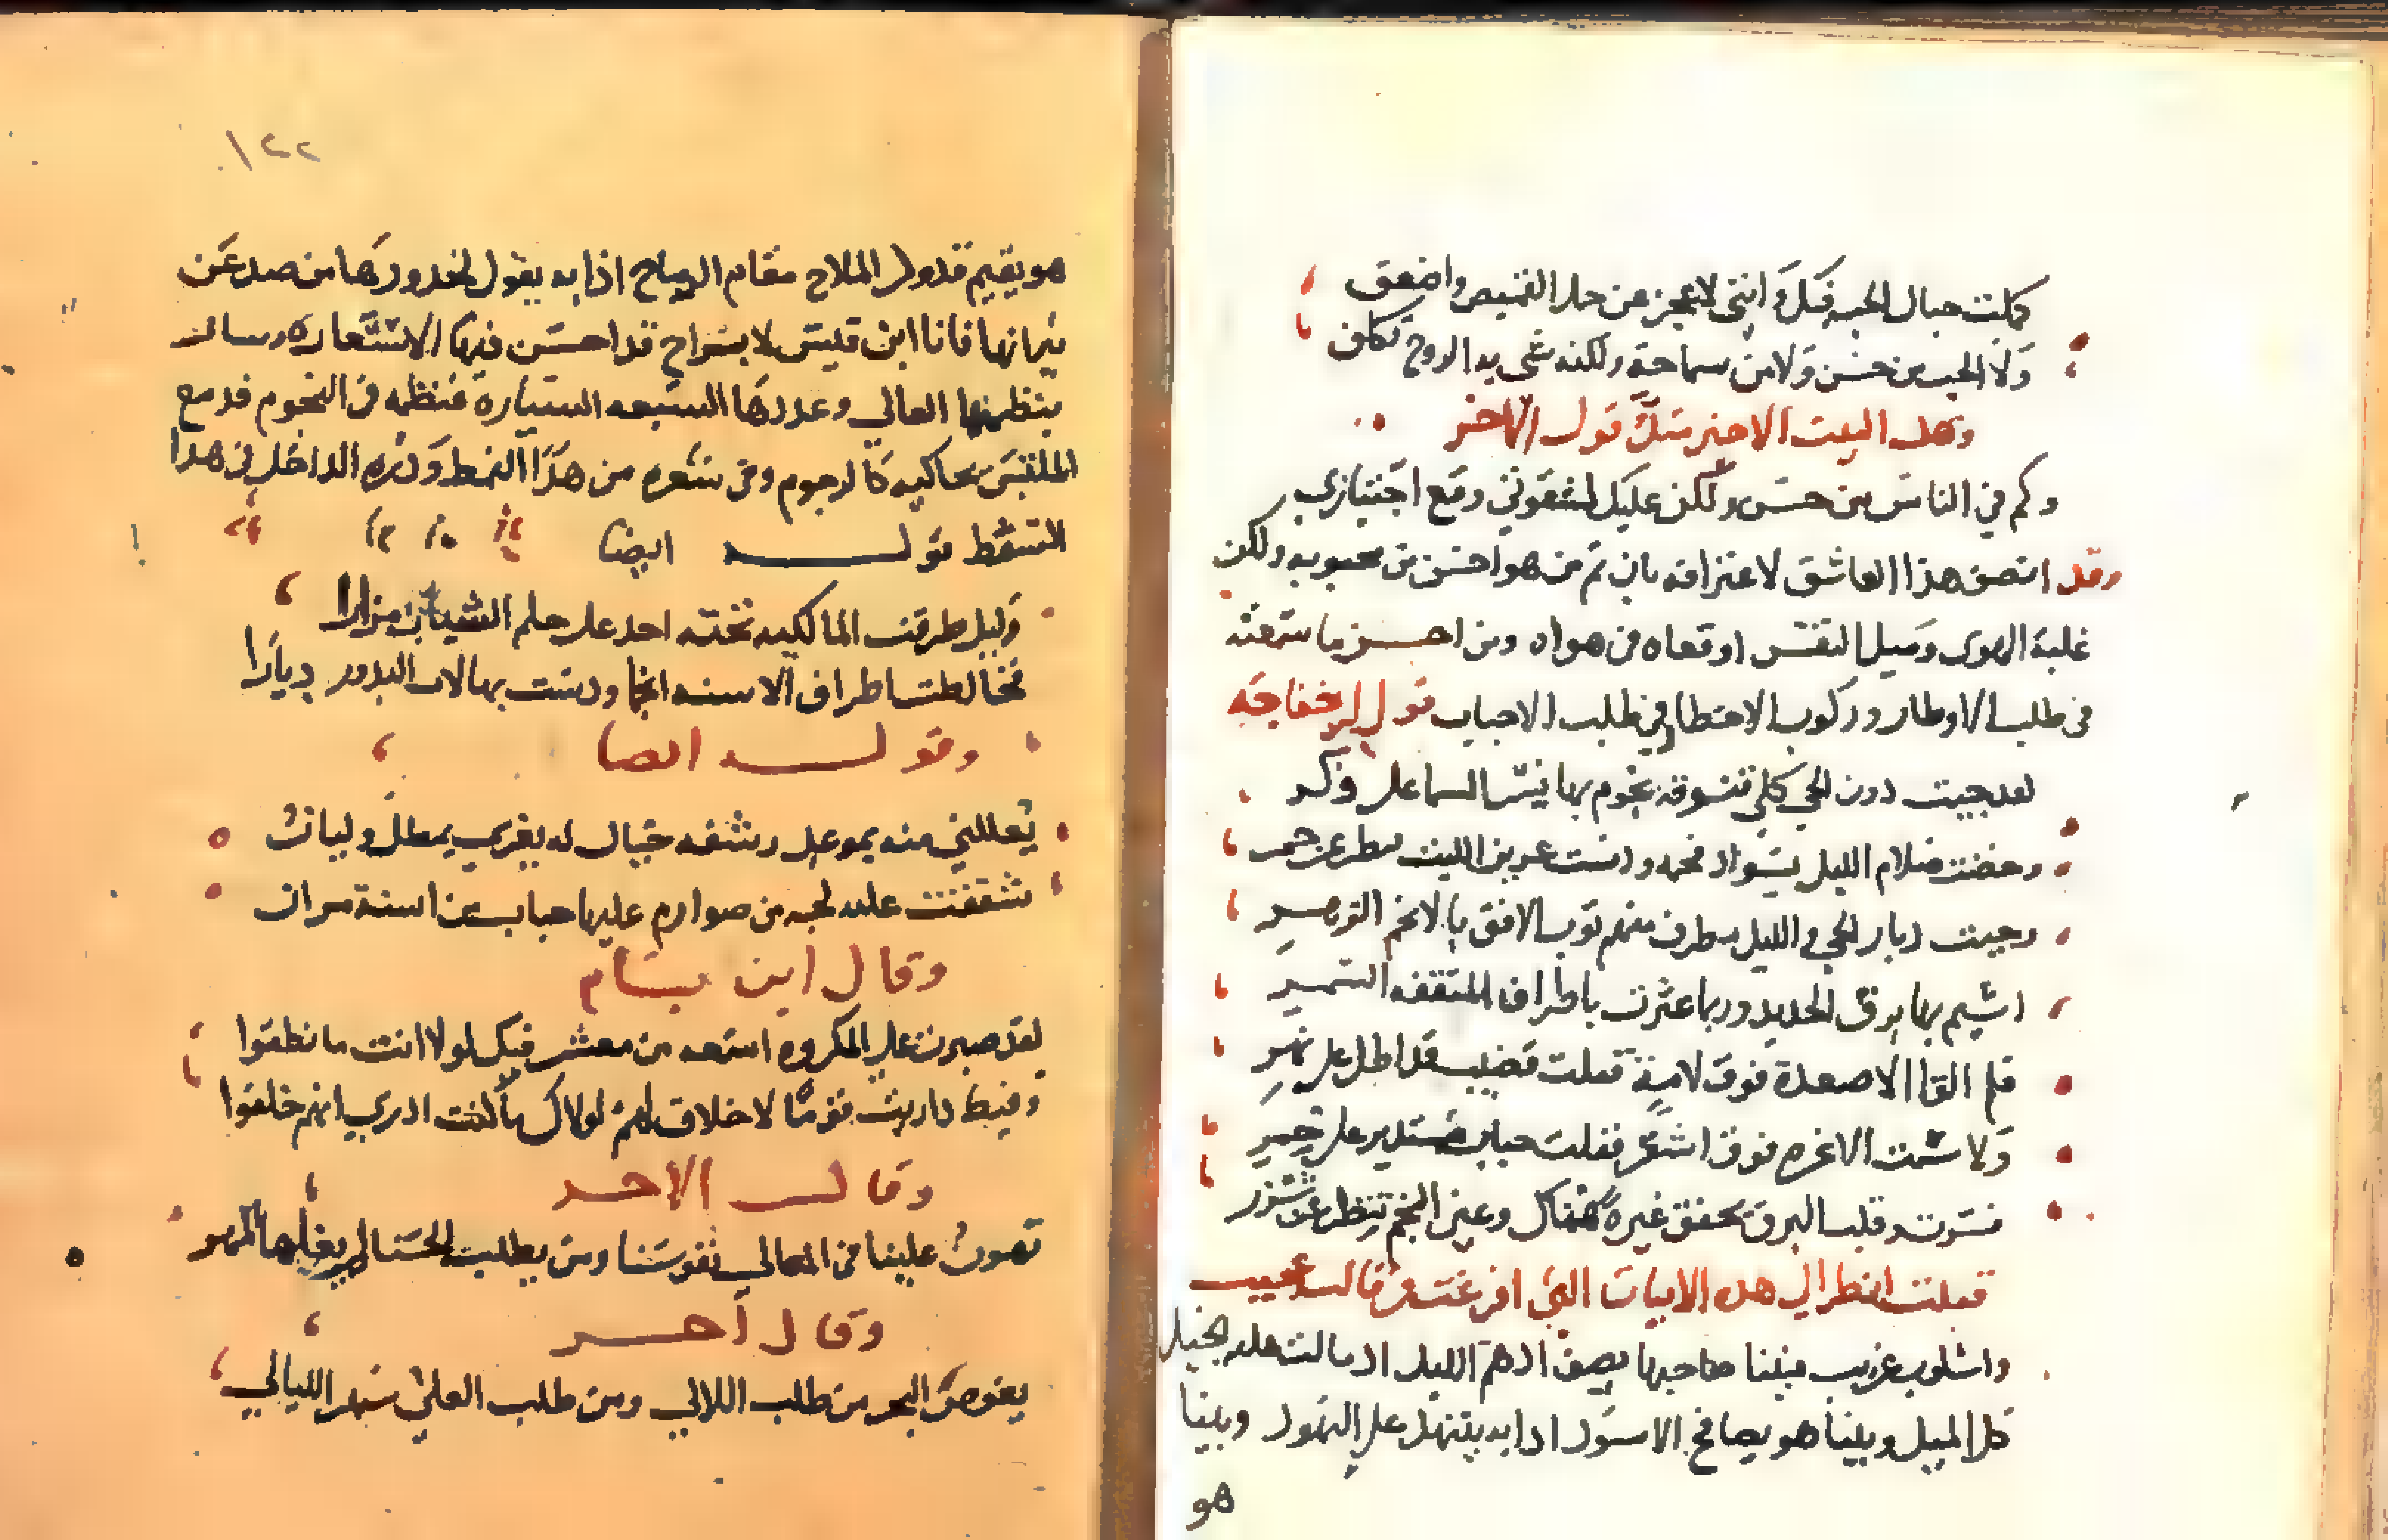 حملت جبال الحب فيك وانني لاعجز عن حمل القميص واضعف
ولا الحب من حسن ولا من سماحة ولكنه شي به الروح تكلف
وهذا البيت الاخير مثل قول الاخر
وكم في الناس من حسن ولكن عليك لشقوتي وقع اختياري
وقد انصف هذا العاشق لاعترافه بان ثم من هو احسن من محبوبه ولكن
غلبة الهوى وميل النفس اوقعاه في هواه ومن احسن ما سمعته
في طلب الاوطار وركوب الاخطار في طلب الاحباب قول ابن خفاجه
لقد جبت دون الحي كل تنوفة يحوم بها نسر السما على وكر
وخضت ظلام الليل يسود فحمه ودست عرين الليث ينظر عن جمر
وجيت ديار الحي والليل مطرق منمنم ثوب الافق بالانجم الزهر
اشيم بها برق الحديد وربما عثرت باطراف المثقفه السمر
فلم الق الا صعدة فوق لامة فقلت قضيب قد اطل على نهر
ولا شمت الا غره فوق اشقر فقلت حباب مستدير على خمر
فسرت وقلب البرق يخفق غيرة هناك وعين النجم تنظر عن شزر
قلت انظر الى هذه الابيات التي افرغت في قالب عجيب
واسلوب غريب فبينا صاحبها يصف ادهم الليل اذ مالت عليه الخيل
كل الميل وبينا هو يصافح الاسود اذا به يتنهد على النهود وبينا
هو
١٢٢
هو يقيم قدود الملاح مقام الرماح اذا به يقول لخدودها من صد عن
نيرانها فانا ابن قيس لا براح قد احسن فيها الاستعاره وسالت
بنظمها العالي وعددها السبعه السياره فنظمه في النجوم قد مع
الملتبس يحاكيه كالرجوم وفي شعره من هذا النمط ودره الداخل في هذا
السقط قوله ايضا
وليل طرقت المالكيه تحته اجد على حكم الشباب مزارا
فخالطت اطراف الاسنه انجما ودست بهالات البدور ديارا
وقوله ايضا
يعللني منه بموعد رشفه خيال له يغري بمطل وليان
شققت عليه لجه من صوارم عليها حباب من اسنة مران
وقال ابن بسام
لقد صبرت على المكروه اسمعه من معشر فيك لولا انت ما نطقوا
وفيك داريت قوما لا خلاق لهم لولاك ما كنت ادري انهم خلقوا
وقال الاخر
تهون علينا في المعالي نفوسنا ومن يطلب الحسنا لم يغلها المهر
وقال اخر
يغوص البحر من طلب اللالي ومن طلب العلى سهر الليالي